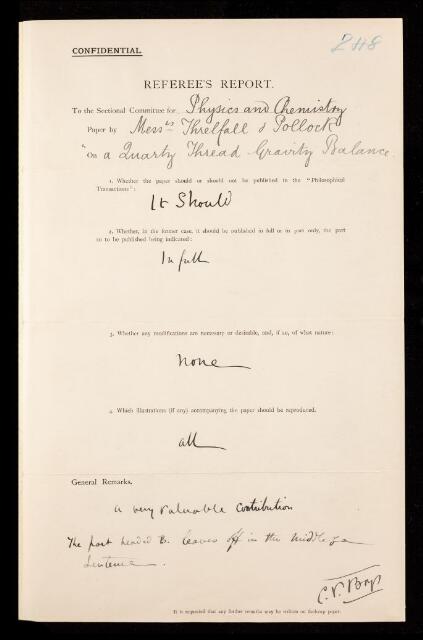 CONFIDENTIAL.
248
REFEREE'S REPORT.
To the Sectional Committee for Physics and Chemistry
Paper by Messrs Threlfall & Pollock
"On a Quartz Thread Gravity Balance.
1. Whether the paper should or should not be published in the "Philosophical
Transactions":
It Should
2. Whether, in the former case, it should be published in full or in part only, the part
so to be published being indicated:
In full
3. Whether any modifications are necessary or desirable, and, if so, of what nature:
none
4. Which illustrations (if any) accompanying the paper should be reproduced.
all
General Remarks.
A very valuable contribution
The part headed B. leaves off in the middle of a
sentence.
C. V. Boys
It is requested that any further remarks may be written on foolscap paper.